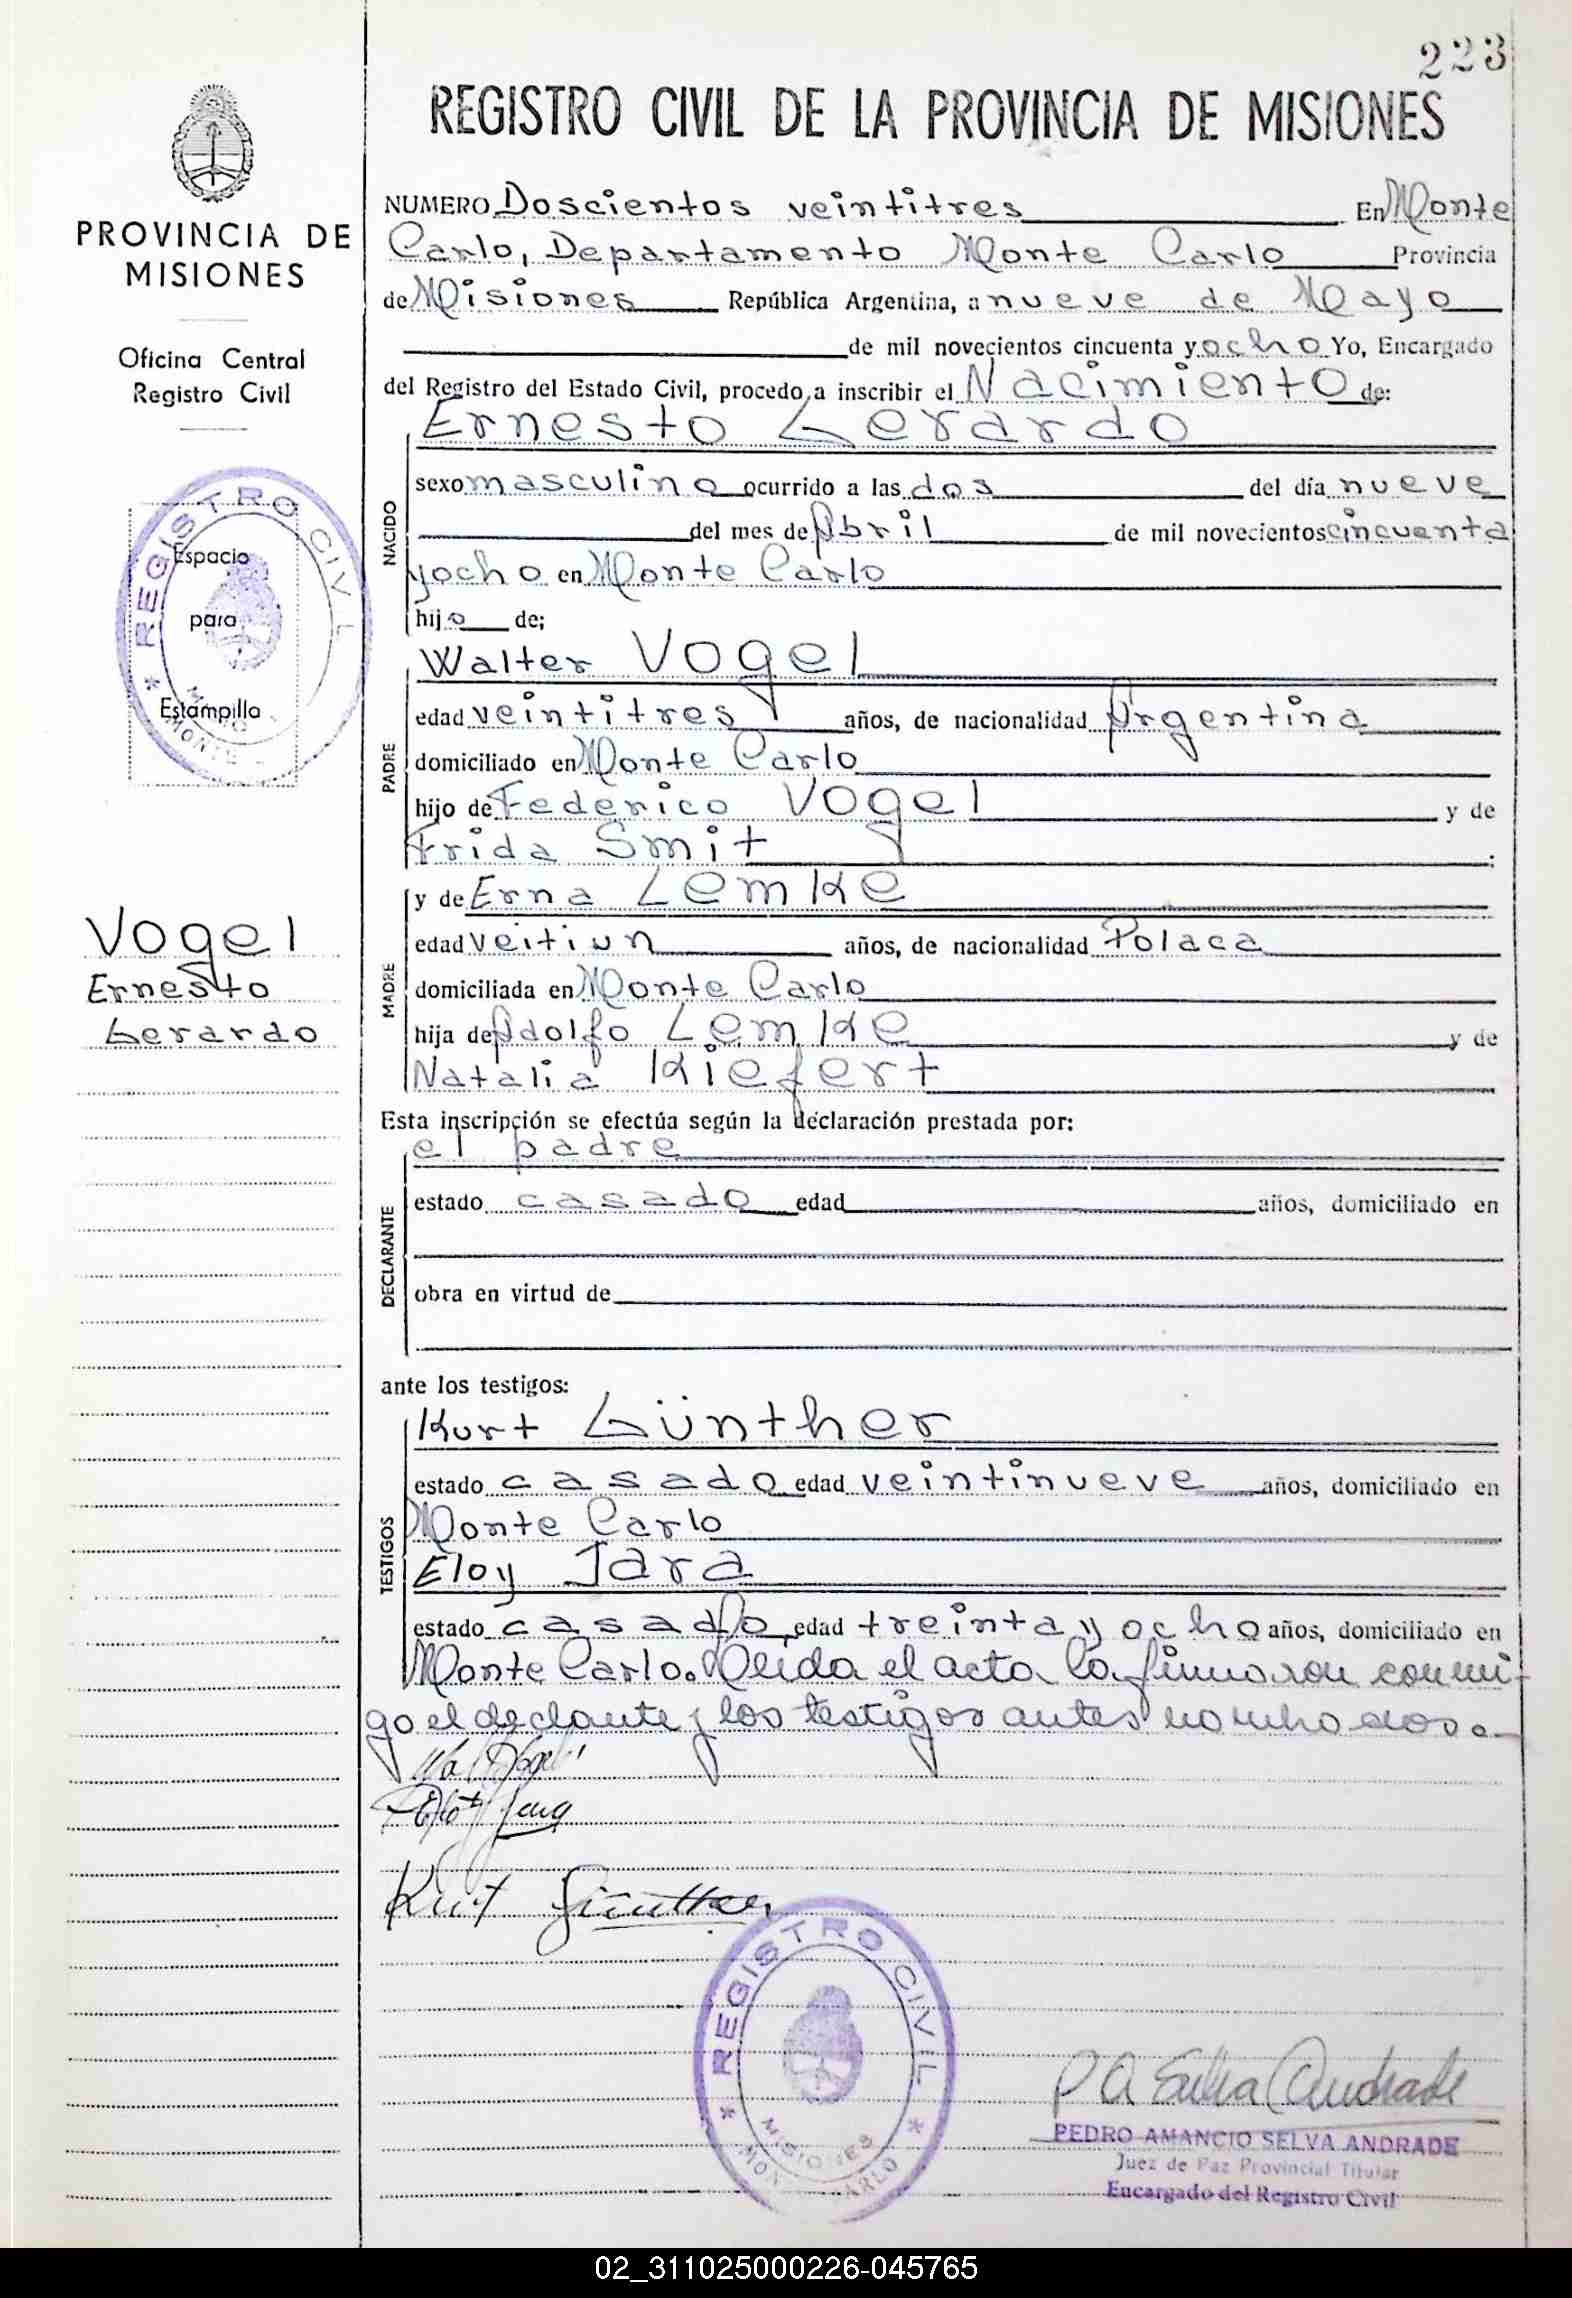 223
REGISTRO CIVIL DE LA PROVINCIA DE MISIONES
PROVINCIA DE
MISIONES
Oficina Central
Registro Civil
REGISTRO CIVIL
Espacio
para
Estampilla
Vogel
Ernesto
Gerardo
NUMERO Doscientos veintitres En Monte
Carlo, Departamento Monte Carlo Provincia
de Misiones República Argentina, a nueve de Mayo
de mil novecientos cincuenta y ocho Yo, Encargado
del Registro del Estado Civil, procedo a inscribir el Nacimiento de:
NACIDO
Ernesto Gerardo
sexo masculino ocurrido a las dos del día nueve
del mes de Abril de mil novecientos cincuenta
y ocho en Monte Carlo
hijo de;
PADRE
Walter Vogel
edad veintitres años, de nacionalidad Argentina
domiciliado en Monte Carlo
hijo de Federico Vogel y de
Frida Smit ;
MADRE
y de Erna Lemke
edad veitiun años, de nacionalidad Polaca
domiciliada en Monte Carlo
hija de Adolfo Lemke y de
Natalia Kiefert
Esta inscripción se efectúa según la declaración prestada por:
DECLARANTE
el padre
estado casado edad años, domiciliado en
obra en virtud de
ante los testigos:
TESTIGOS
Kurt Günther
estado casado edad veintinueve años, domiciliado en
Monte Carlo
Eloy Jara
estado casado edad treinta y ocho años, domiciliado en
Monte Carlo. Leida el acta la firmaron conmi-
go el declante y los testigos antes nombrados.-
Kurt Günther
REGISTRO CIVIL
MISIONES
P A Selva Andrade
PEDRO AMANCIO SELVA ANDRADE
Juez de Paz Provincial Titular
Encargado del Registro Civil
02_311025000226-045765